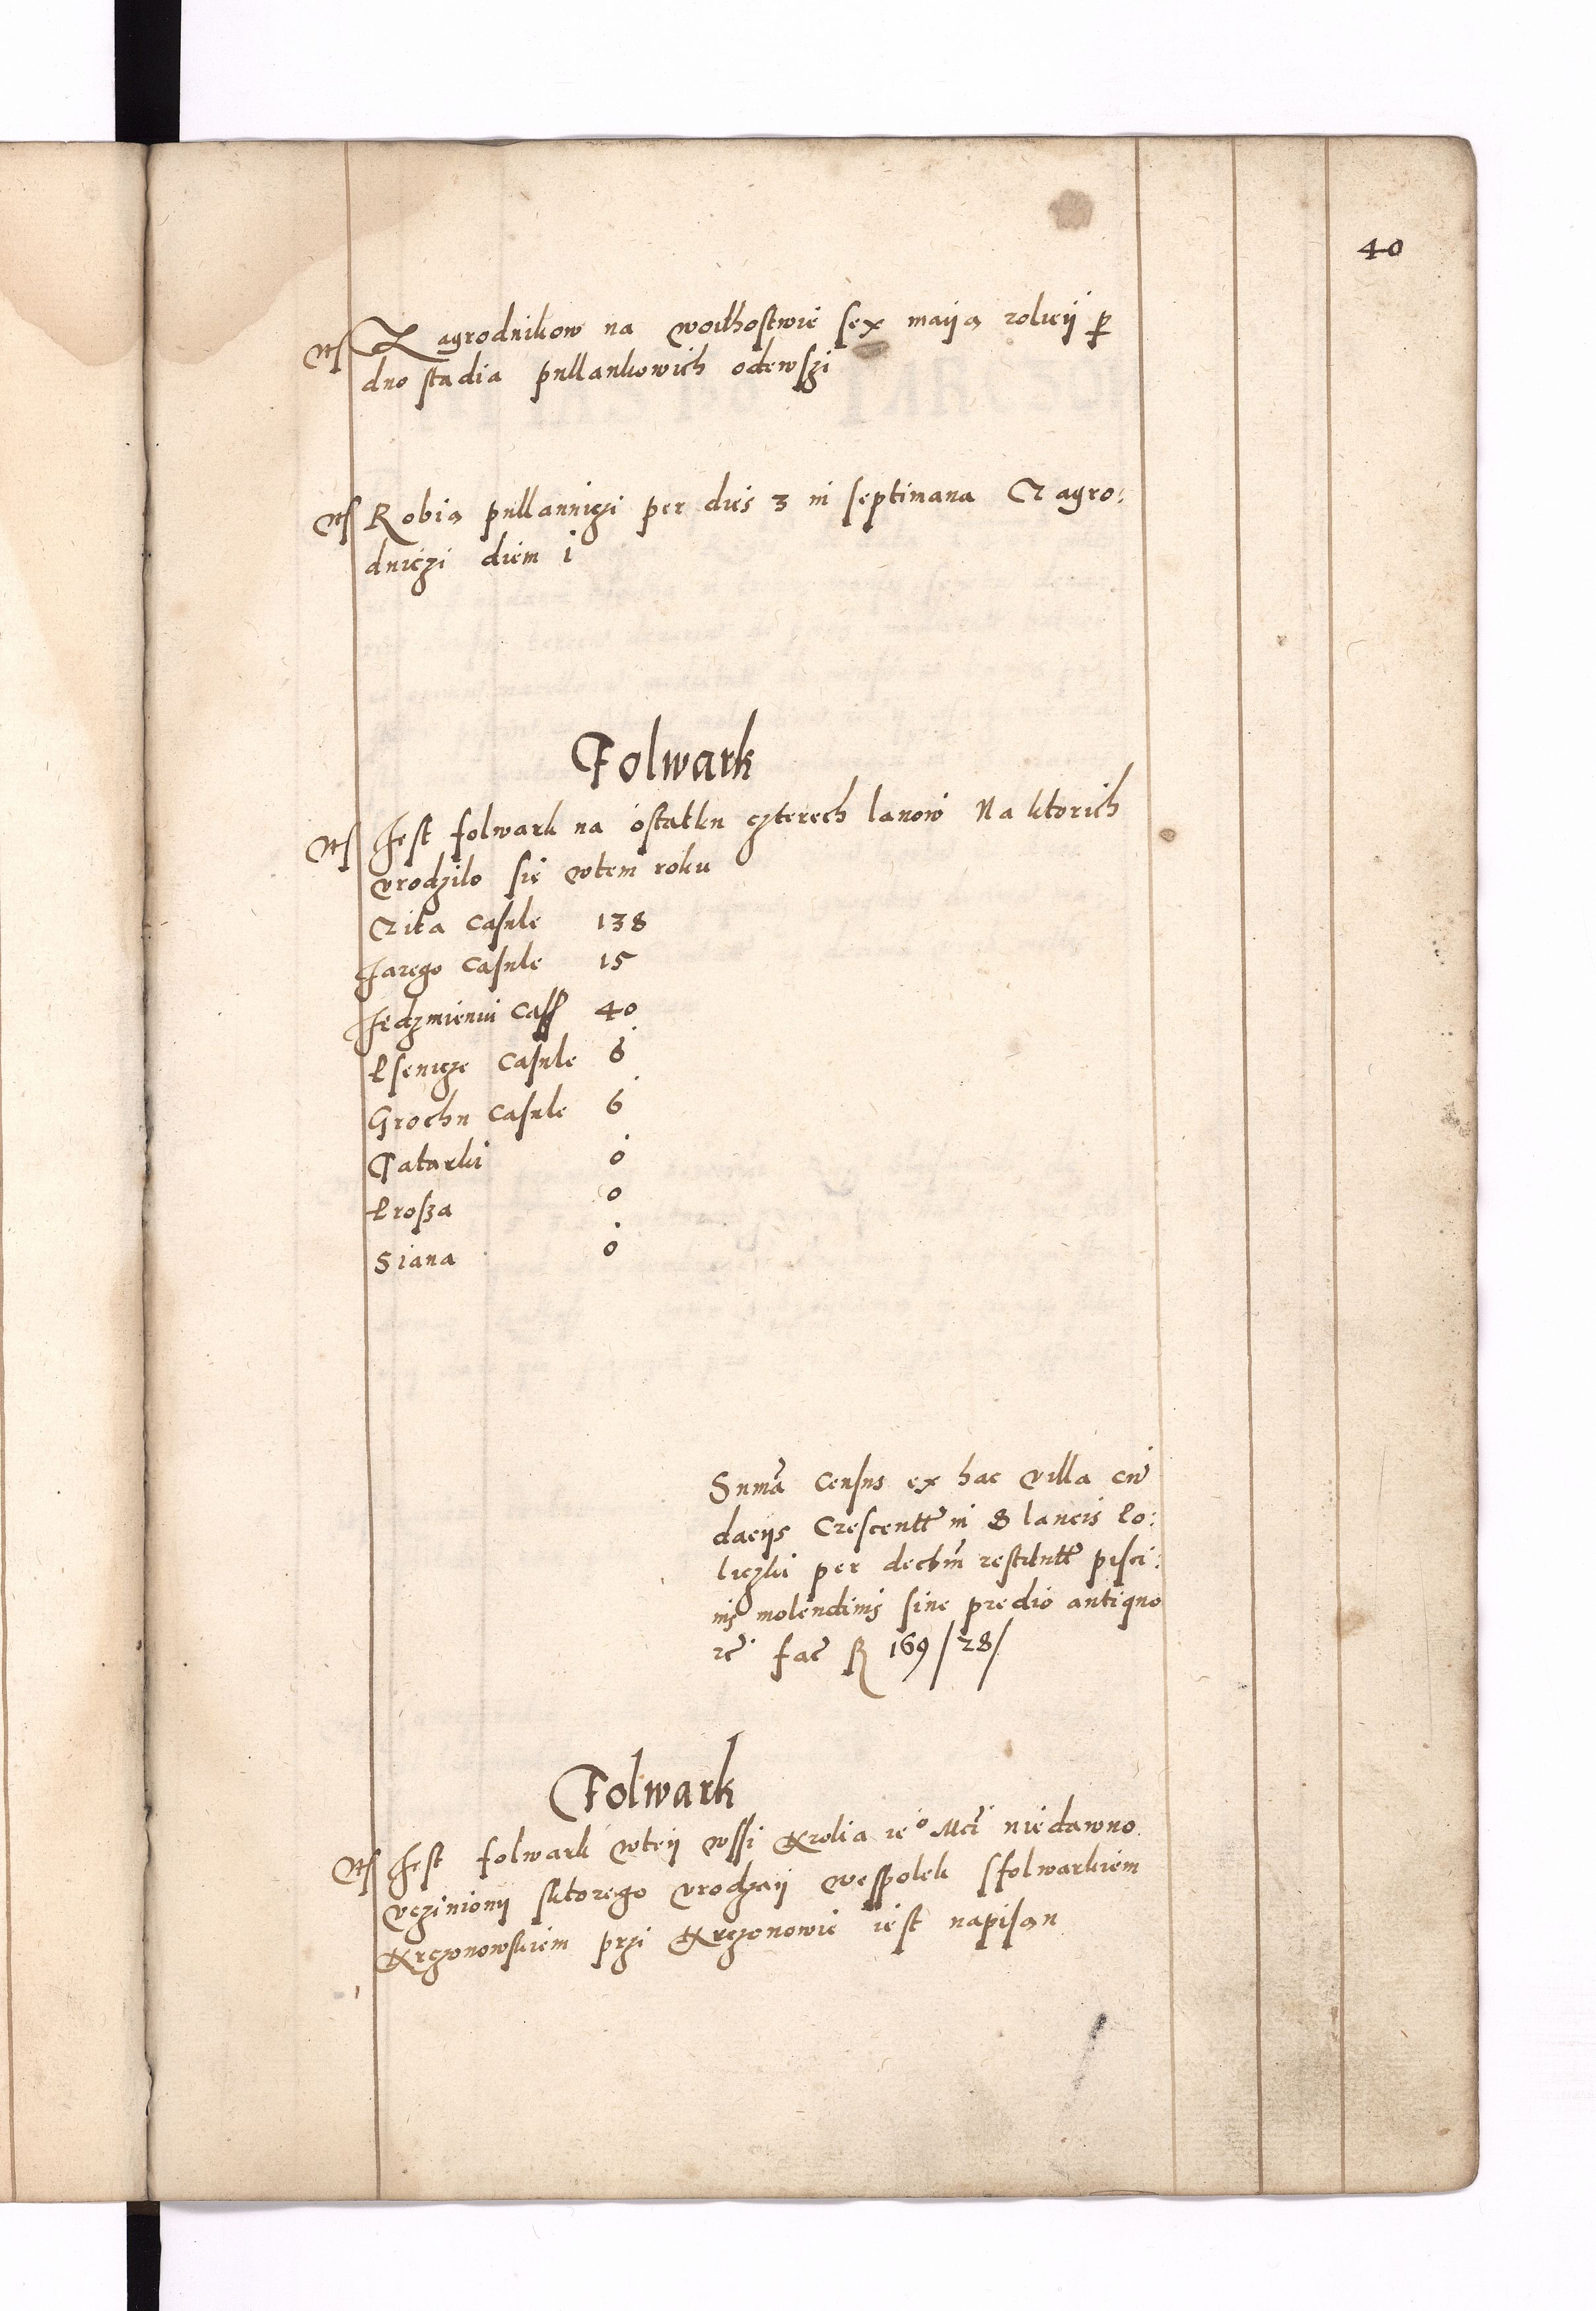 40
Zagrodnikow na woithostwie sex maiją roliej per
duo stadia pullankowich odewszi
Robią pullanniczi per dies 3 in septimana Zagro:
dniczi diem i
Folwark
Jest folwark na ostatku czterech lanow Na ktorich
urodzilo sie wtem roku
Zita Casule 138
Jarego Casule 15
Jedzmieniu Cass 40
Psenicze Casule 6
Grochu Casule 6
Tatarki 0
Prosza 0
Siana 0
Summa Census ex hac villa cum
daciis Crescentur in 8 laneis Po:
liczki per dechm restibutur pisci:
nis molendinis sine predio antiquo
fac R 169/28/
Folwark
Jest folwark wtej wssi Krolia ieo Mci niedawno
uczinionij sktorego urodzaij wespolek sfolwarkiem
Krczonowskiem przi Krczonowie iest napisan